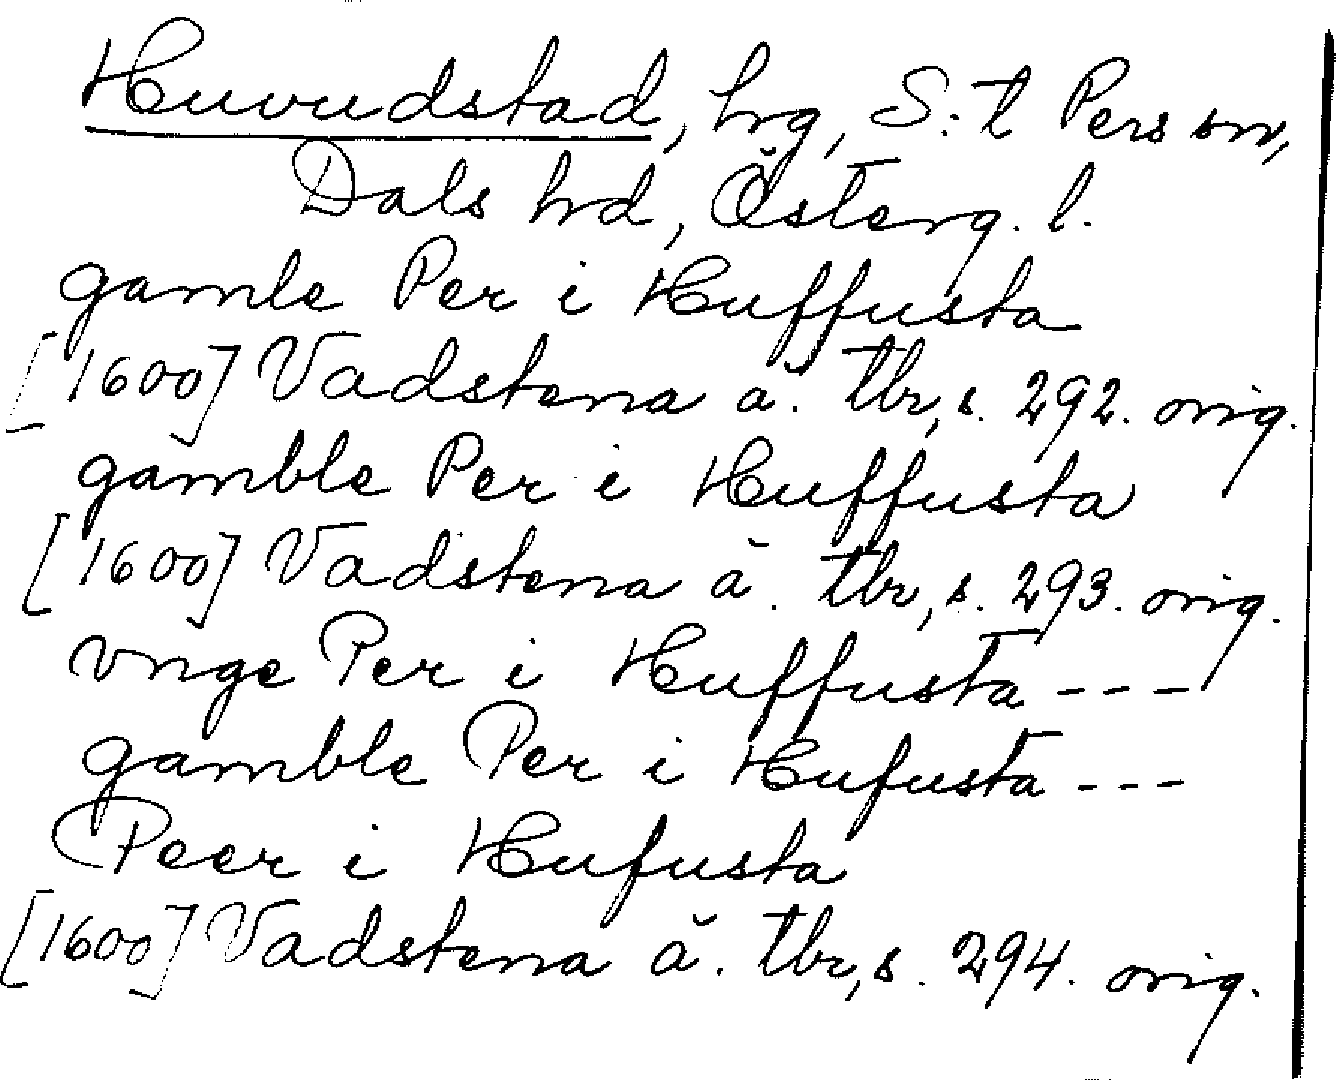 Huvudstad, hrg, S:t Pers sn,
Dals hrd, Österg. l.
gamle Per i Huffusta
[1600] Vadstena ä. tbr, s. 292. orig.
gamble Per i Huffusta
[1600] Vadstena ä. tbr, s. 293. orig.
vnge Per i Huffusta ---
gamble Per i Hufusta ---
Peer i Hufusta
[1600] Vadstena ä. tbr, s. 294. orig.